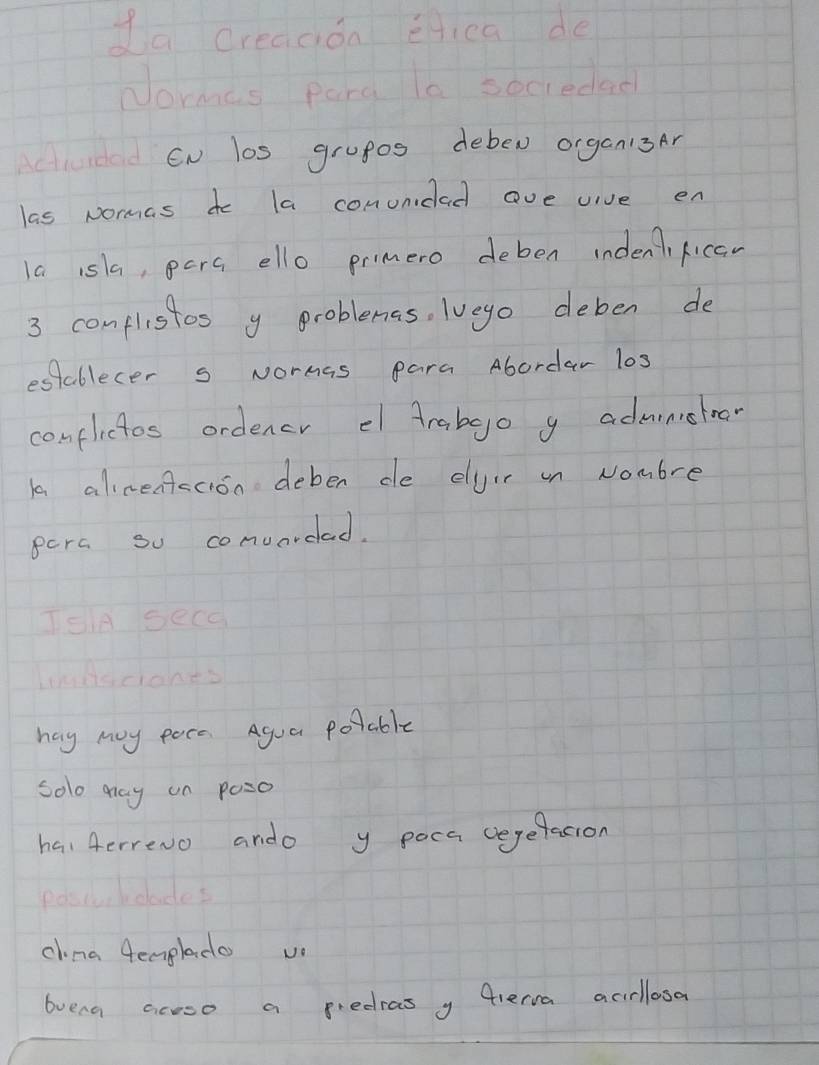 La Creación ética de
Normas para la sociedad
Actividad EN los grupos deben organizAr
las Normas de la comunidad Que vive en
la isla, para ello primero deben indentificar
3 conflistos y problemas. luego deben de
establecer 5 Normas para Abordar los
conflictos ordenar el trabajo y administrar
la alimentación. deben de elyir un Nombre
para su comunidad.
ISlA seca
limitaciones
hay muy poca Agua potable
solo may un poso
hai terreno arido y poca vegetacion
clima templado
buena acuso a piedras y tierra acirllosa